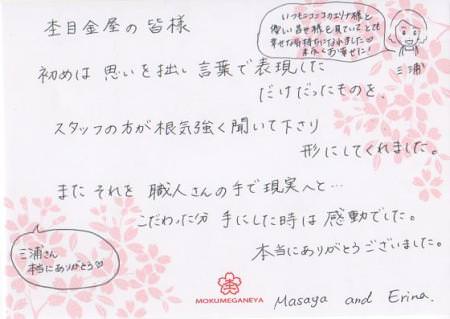 杢目金屋の皆様
いつもニコニコのエリナ様と
優しい昌也様を見ていてとても
幸せな気持ちになれました♡
末永くお幸せに!
三浦
初めは 思いを拙い言葉で表現した
だけだったものを、
スタッフの方が根気強く聞いて下さり
形にしてくれました。
また それを 職人さんの手で現実へと…
こだわった分 手にした時は 感動でした。
本当にありがとうございました。
三浦さん
本当にありがとう♡
MOKUMEGANEYA
Masaya and Erina.